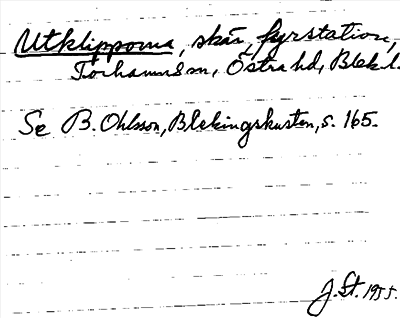 Utklipporna, skär, fyrstation,
Torhamns sn, Östra hd, Blek. l.
Se B. Ohlsson, Blekingskusten, s. 165.
J. St. 1955.